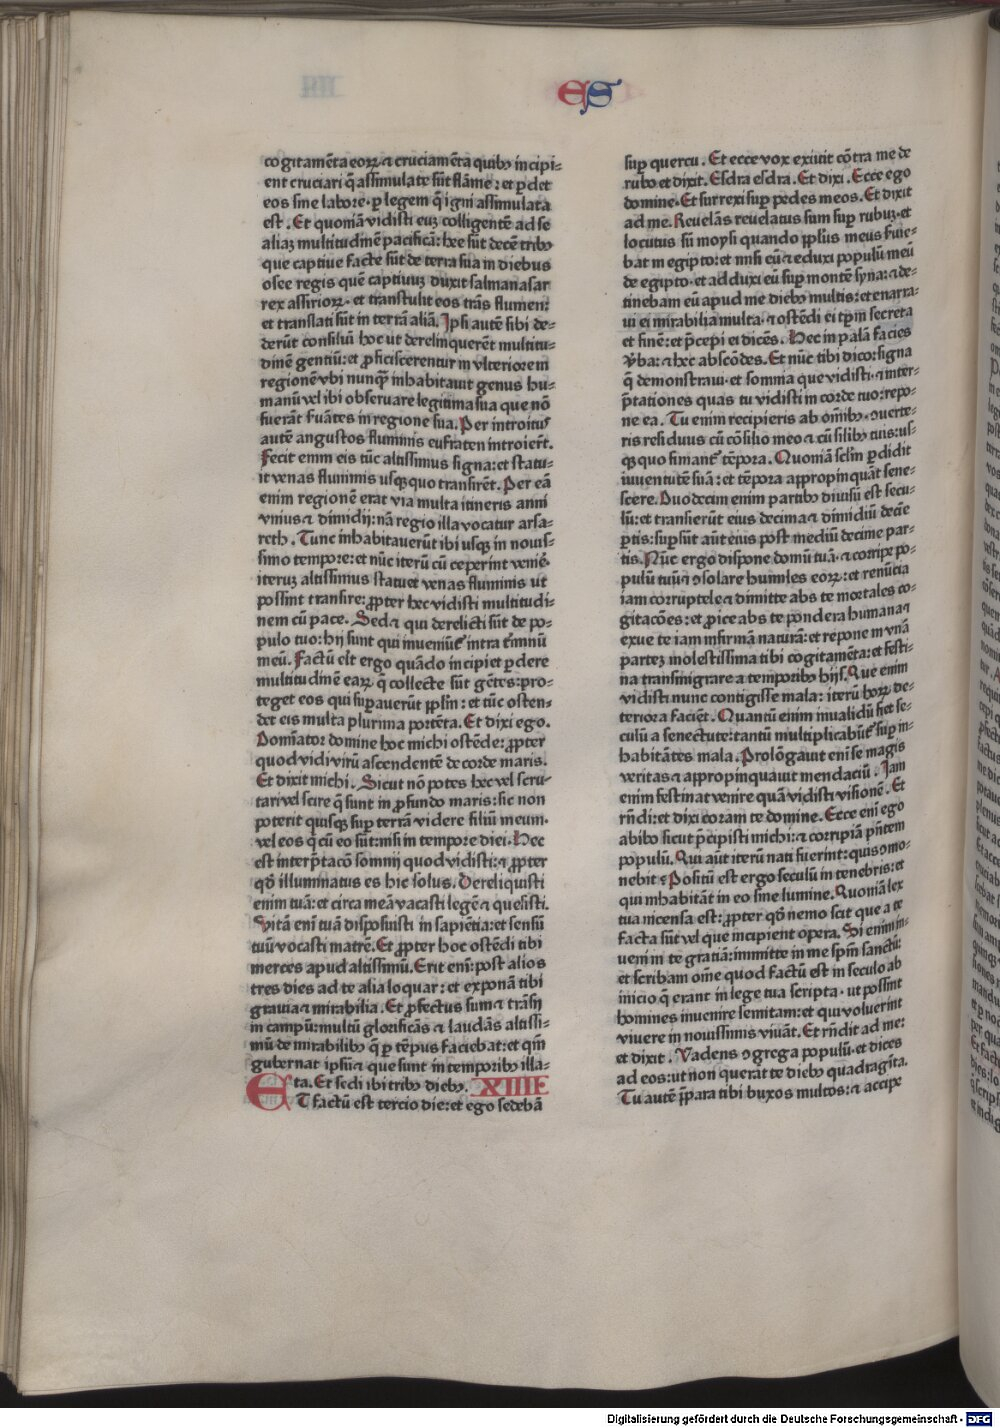 ES
cogitamēta eoꝝ ⁊ cruciamēta quibꝰ incipi⸗
ent cruciari q̄ assimulate sūt flāme: et ꝑdet
eos sine labore· ꝑ legem q̄ igni assimulata
est. Et quoniā vidisti euꝫ colligentē ad se
aliaꝫ multitudinē pacificā: hee sūt decē tribꝰ
que captiue facte sūt de terra sua in diebus
osee regis quē captiuuꝫ duxit salmanasar
rex assirioꝝ· et transtulit eos trās flumen:
et translati sūt in terrā aliā. Ipsi autē sibi de⸗
derūt consiliū hoc ut derelinquerēt multitu⸗
dinē gentiū: et ꝓficiscerentur in vlteriorem
regionē vbi nunqꝫ inhabitauit genus hu⸗
manū vel ibi obseruare legitima sua que nō
fuerāt ẜuātes in regione sua. Per introitus
autē angustos fluminis eufraten introierūt.
Fecit enim eis tūc altissimus signa: et statu⸗
it venas fluminis usqꝫquo transirēt. Per eā
enim regionē erat via multa itineris anni
vnius ⁊ dimidij: nā regio illa vocatur arsa⸗
reth. Tunc inhabitauerūt ibi usqꝫ in nouis⸗
simo tempore: et nūc iterū cū ceperint venire·
iteruꝫ altissimus statuet venas fluminis ut
possint transire: ꝓpter hec vidisti multitudi⸗
nem cū pace. Sed ⁊ qui derelicti sūt de po⸗
pulo tuo: hij sunt qui inueniūt̉ intra t̉minū
meū. Factū est ergo quādo incipiet ꝑdere
multitudinē earꝝ q̄ collecte sūt gētes: pro⸗
teget eos qui suꝑauerūt pplm: et tūc osten⸗
det eis multa plurima portēta. Et dixi ego.
Domīator domine hoc michi ostēde: ꝓpter
quod vidi virū ascendentē de corde maris.
Et dixit michi. Sicut nō potes hec vel scru⸗
tari vel scire q̄ sunt in ꝓfundo maris: sic non
poterit quisqꝫ suꝑ terrā videre filiū meum·
vel eos q̄ cū eo sūt: nisi in tempore diei. Hec
est interp̄tacō somnij quod vidisti: ⁊ ꝓpter
qd̄ illuminatus es hic solus. Dereliquisti
enim tuā: et circa meā vacasti legē ⁊ quesisti.
Vitā enī tuā disposuisti in sapiētia: et sensū
tuū vocasti matrē. Et ꝓpter hoc ostēdi tibi
merces apud altissimū. Erit enī: post alios
tres dies ad te alia loquar: et exponā tibi
grauia ⁊ mirabilia. Et ꝓfectus sum ⁊ trāsij
in campū: multū glorificās ⁊ laudās altissi⸗
mū de mirabilibꝰ q̄ ꝑ tēpus faciebat: et qm̄
gubernat ipsū ⁊ que sunt in temporibꝰ illa⸗
ta. Et sedi ibi tribꝰ diebꝰ. XIIII
ET factū est tercio die: et ego sedebā
suꝑ quercu. Et ecce vox exiuit cōtra me de
rubo et dixit. Esdra esdra. Et dixi. Ecce ego
domine. Et surrexi suꝑ pedes meos. Et dixit
ad me. Reuelās reuelatus sum suꝑ rubuꝫ· et
locutus sū moysi quando pplus meus ẜuie⸗
bat in egipto: et misi eū ⁊ eduxi populū meū
de egipto· et adduxi eū suꝑ montē syna: ⁊ de⸗
tinebam eū apud me diebꝰ multis: et enarra⸗
ui ei mirabilia multa· ⁊ ostēdi ei tpm̄ secreta
et finē: et p̄cepi ei dicēs. Hec in palā facies
v̉ba: ⁊ hec abscōdes. Et nūc tibi dico: signa
q̄ demonstraui· et somnia que vidisti· ⁊ inter⸗
p̄tationes quas tu vidisti in corde tuo: repo⸗
ne ea. Tu enim recipieris ab omībꝰ· ꝯuerte⸗
ris residuus cū cōsilio meo ⁊ cū silibꝰ tuis: us⸗
qꝫquo finiant̉ tēpora. Quoniā sclm̄ ꝑdidit
iuuentutē suā: et tēpora appropinquāt sene⸗
scere. Duodecim enim partibꝰ diuisū est secu⸗
lū: et transierūt eius decima ⁊ dimidiū decīe
ꝑtis: suꝑsūt aūt eius post mediū decime par⸗
tis. Nūc ergo dispone domū tuā· ⁊ corripe po⸗
pulū tuū ⁊ ꝯsolare humiles eorꝝ: et renūcia
iam corruptele ⁊ dimitte abs te mortales co⸗
gitacōes: et proice abs te pondera humana ⁊
exue te iam infirmā naturā: et repone in vnā
partez molestissima tibi cogitamēta: et festi⸗
na transmigrare a temporibꝰ hijs. Que enim
vidisti nunc contigisse mala: iterū horꝝ de⸗
teriora faciēt. Quantū enim inualidū fiet se⸗
culū a senectute: tantū multiplicabūt̉ suꝑ in⸗
habitātes mala. Prolōgauit enī se magis
veritas ⁊ appropinquauit mendaciū. Iam
enim festinat venire quā vidisti visionē. Et
rn̄di: et dixi coram te domine. Ecce enī ego
abibo sicut p̄cipisti michi: ⁊ corripiā p̄ntem
populū. Qui aūt iterū nati fuerint: quis ꝯmo⸗
nebit? Positū est ergo seculū in tenebris: et
qui inhabitāt in eo sine lumine. Quoniā lex
tua incensa est: ꝓpter qd̄ nemo scit que a te
facta sūt vel que incipient opera. Si enim in⸗
ueni in te gratiā: immitte in me spm̄ sanctū:
et scribam om̄e quod factū est in seculo ab
inicio q̄ erant in lege tua scripta· ut possint
homines inuenire semitam: et qui voluerint
viuere in nouissimis viuāt. Et rn̄dit ad me:
et dixit. Vadens ꝯgrega populū· et dices
ad eos: ut non querāt te diebꝰ quadragīta.
Tu autē ꝑpara tibi buxos multos: ⁊ accipe
Digitalisierung gefördert durch die Deutsche Forschungsgemeinschaft - DFG